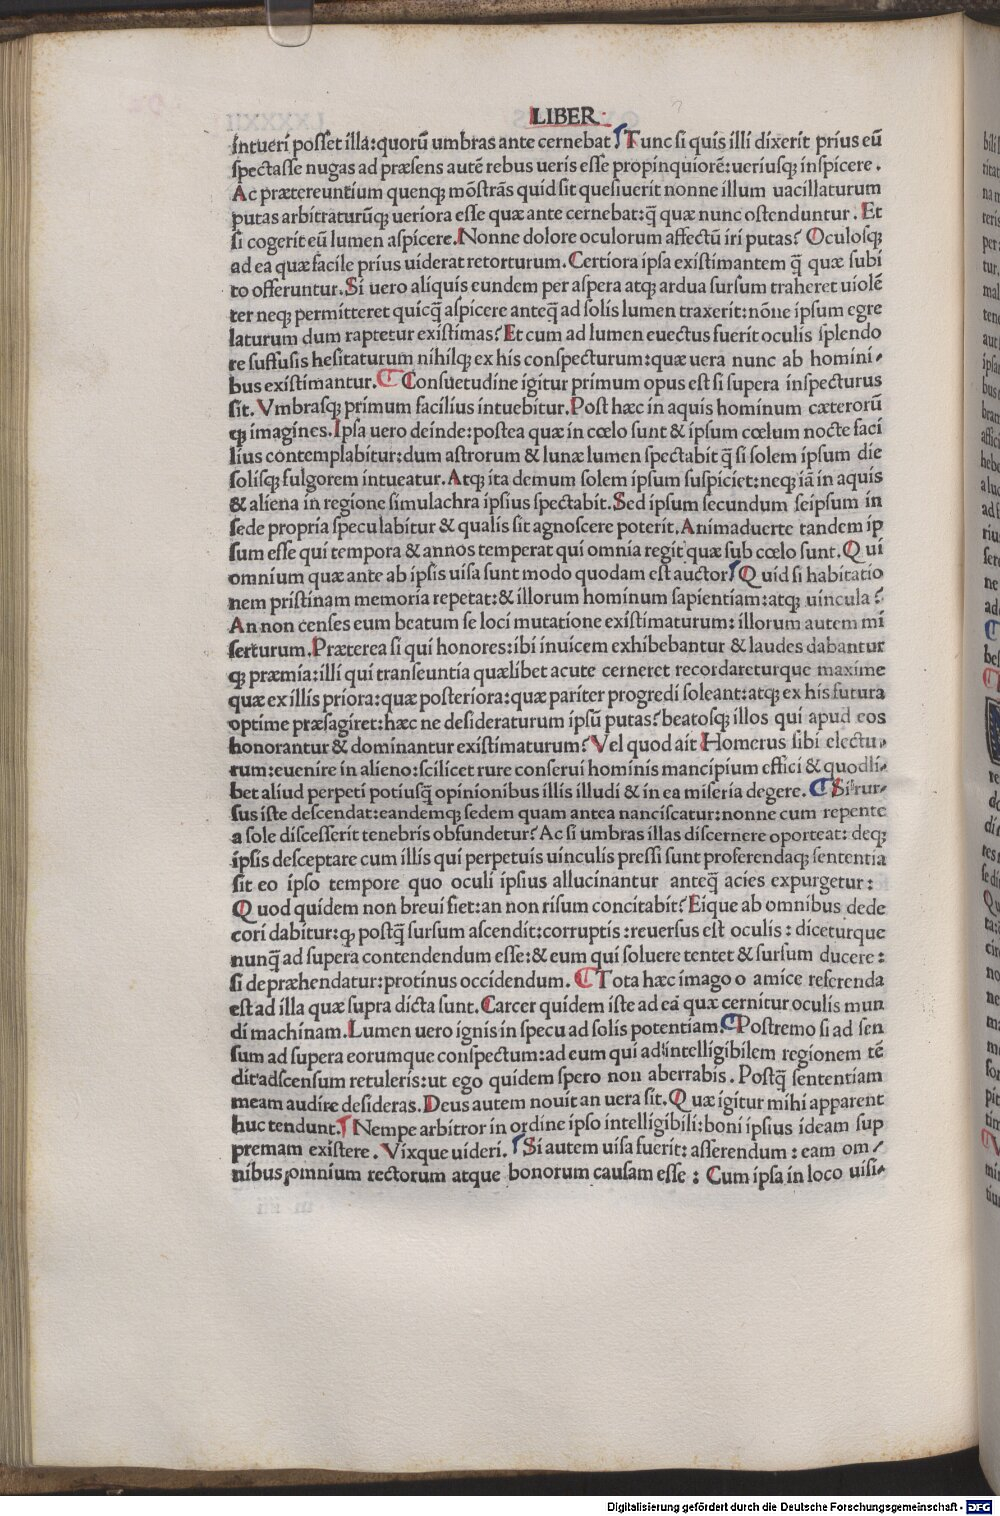 LIBER
intueri posset illa:quorū umbras ante cernebat ¶Tunc si quis illi dixerit prius eū
spectasse nugas ad præsens autē rebus ueris esse propinquiorē:ueriusq; inspicere.
Ac prætereuntium quenq; mōstrās quid sit quesiuerit nonne illum uacillaturum
putas arbitraturūq; ueriora esse quæ ante cernebat:q̄ quæ nunc ostenduntur. Et
si cogerit eū lumen aspicere.Nonne dolore oculorum affectū iri putas? Oculosq;
ad ea quæ facile prius uiderat retorturum.Certiora ipsa existimantem q̄ quæ subi
to offeruntur.Si uero aliquis eundem per aspera atq; ardua sursum traheret uiolē
ter neq; permitteret quicq̄ aspicere anteq̄ ad solis lumen traxerit:nōne ipsum egre
laturum dum raptetur existimas?Et cum ad lumen euectus fuerit oculis splendo
re suffusis hesitaturum nihilq; ex his conspecturum:quæ uera nunc ab homini-
bus existimantur.¶Consuetudine igitur primum opus est si supera inspecturus
sit. Vmbrasq; primum facilius intuebitur.Post hæc in aquis hominum cæterorū
q; imagines.Ipsa uero deinde:postea quæ in cœlo sunt & ipsum cœlum nocte faci
lius contemplabitur:dum astrorum & lunæ lumen spectabit q̄ si solem ipsum die
solisq; fulgorem intueatur.Atq; ita demum solem ipsum suspiciet:neq; iā in aquis
& aliena in regione simulachra ipsius spectabit.Sed ipsum secundum seipsum in
sede propria speculabitur & qualis sit agnoscere poterit.Animaduerte tandem ip
sum esse qui tempora & annos temperat qui omnia regit quæ sub cœlo sunt.Qui
omnium quæ ante ab ipsis uisa sunt modo quodam est auctor ¶Quid si habitatio
nem pristinam memoria repetat:& illorum hominum sapientiam:atq; uincula?
An non censes eum beatum se loci mutatione existimaturum:illorum autem mi
serturum.Præterea si qui honores:ibi inuicem exhibebantur & laudes dabantur
q; præmia:illi qui transeuntia quælibet acute cerneret recordareturque maxime
quæ ex illis priora:quæ posteriora:quæ pariter progredi soleant:atq; ex his futura
optime præsagiret:hæc ne desideraturum ipsū putas?beatosq; illos qui apud eos
honorantur & dominantur existimaturum?Vel quod ait Homerus sibi electu-
rum:euenire in alieno:scilicet rure conserui hominis mancipium effici & quodli-
bet aliud perpeti potiusq̄ opinionibus illis illudi & in ea miseria degere. ¶Si rur-
sus iste descendat:eandemq; sedem quam antea nanciscatur:nonne cum repente
a sole discesserit tenebris obfundetur?Ac si umbras illas discernere oporteat: deq;
ipsis desceptare cum illis qui perpetuis uinculis pressi sunt proferendaq; sententia
sit eo ipso tempore quo oculi ipsius allucinantur anteq̄ acies expurgetur:
Quod quidem non breui fiet:an non risum concitabit?Eique ab omnibus dede
cori dabitur:q; postq̄ sursum ascendit:corruptis:reuersus est oculis: diceturque
nunq̄ ad supera contendendum esse:& eum qui soluere tentet & sursum ducere:
si depræhendatur:protinus occidendum. ¶Tota hæc imago o amice referenda
est ad illa quæ supra dicta sunt.Carcer quidem iste ad eā quæ cernitur oculis mun
di machinam.Lumen uero ignis in specu ad solis potentiam.¶Postremo si ad sen
sum ad supera eorumque conspectum:ad eum qui ad intelligibilem regionem tē
dit adscensum retuleris:ut ego quidem spero non aberrabis.Postq̄ sententiam
meam audire desideras.Deus autem nouit an uera sit.Quæ igitur mihi apparent
huc tendunt.¶Nempe arbitror in ordine ipso intelligibili:boni ipsius ideam sup
premam existere. Vixque uideri. ¶Si autem uisa fuerit: asserendum: eam om-
nibus omnium rectorum atque bonorum causam esse: Cum ipsa in loco uisi-
Digitalisierung gefördert durch die Deutsche Forschungsgemeinschaft - DFG